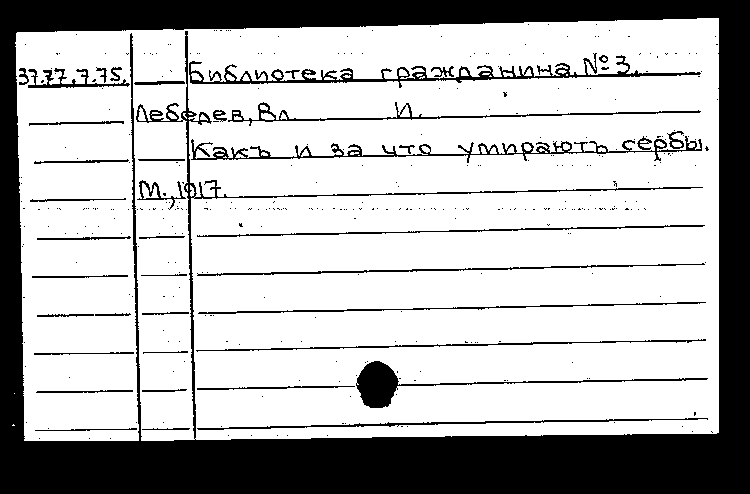 37.77.7.75. Библиотека гражданина. № 3.
Лебедев, Вл. И.
Какъ и за что умираютъ сербы.
М., 1917.